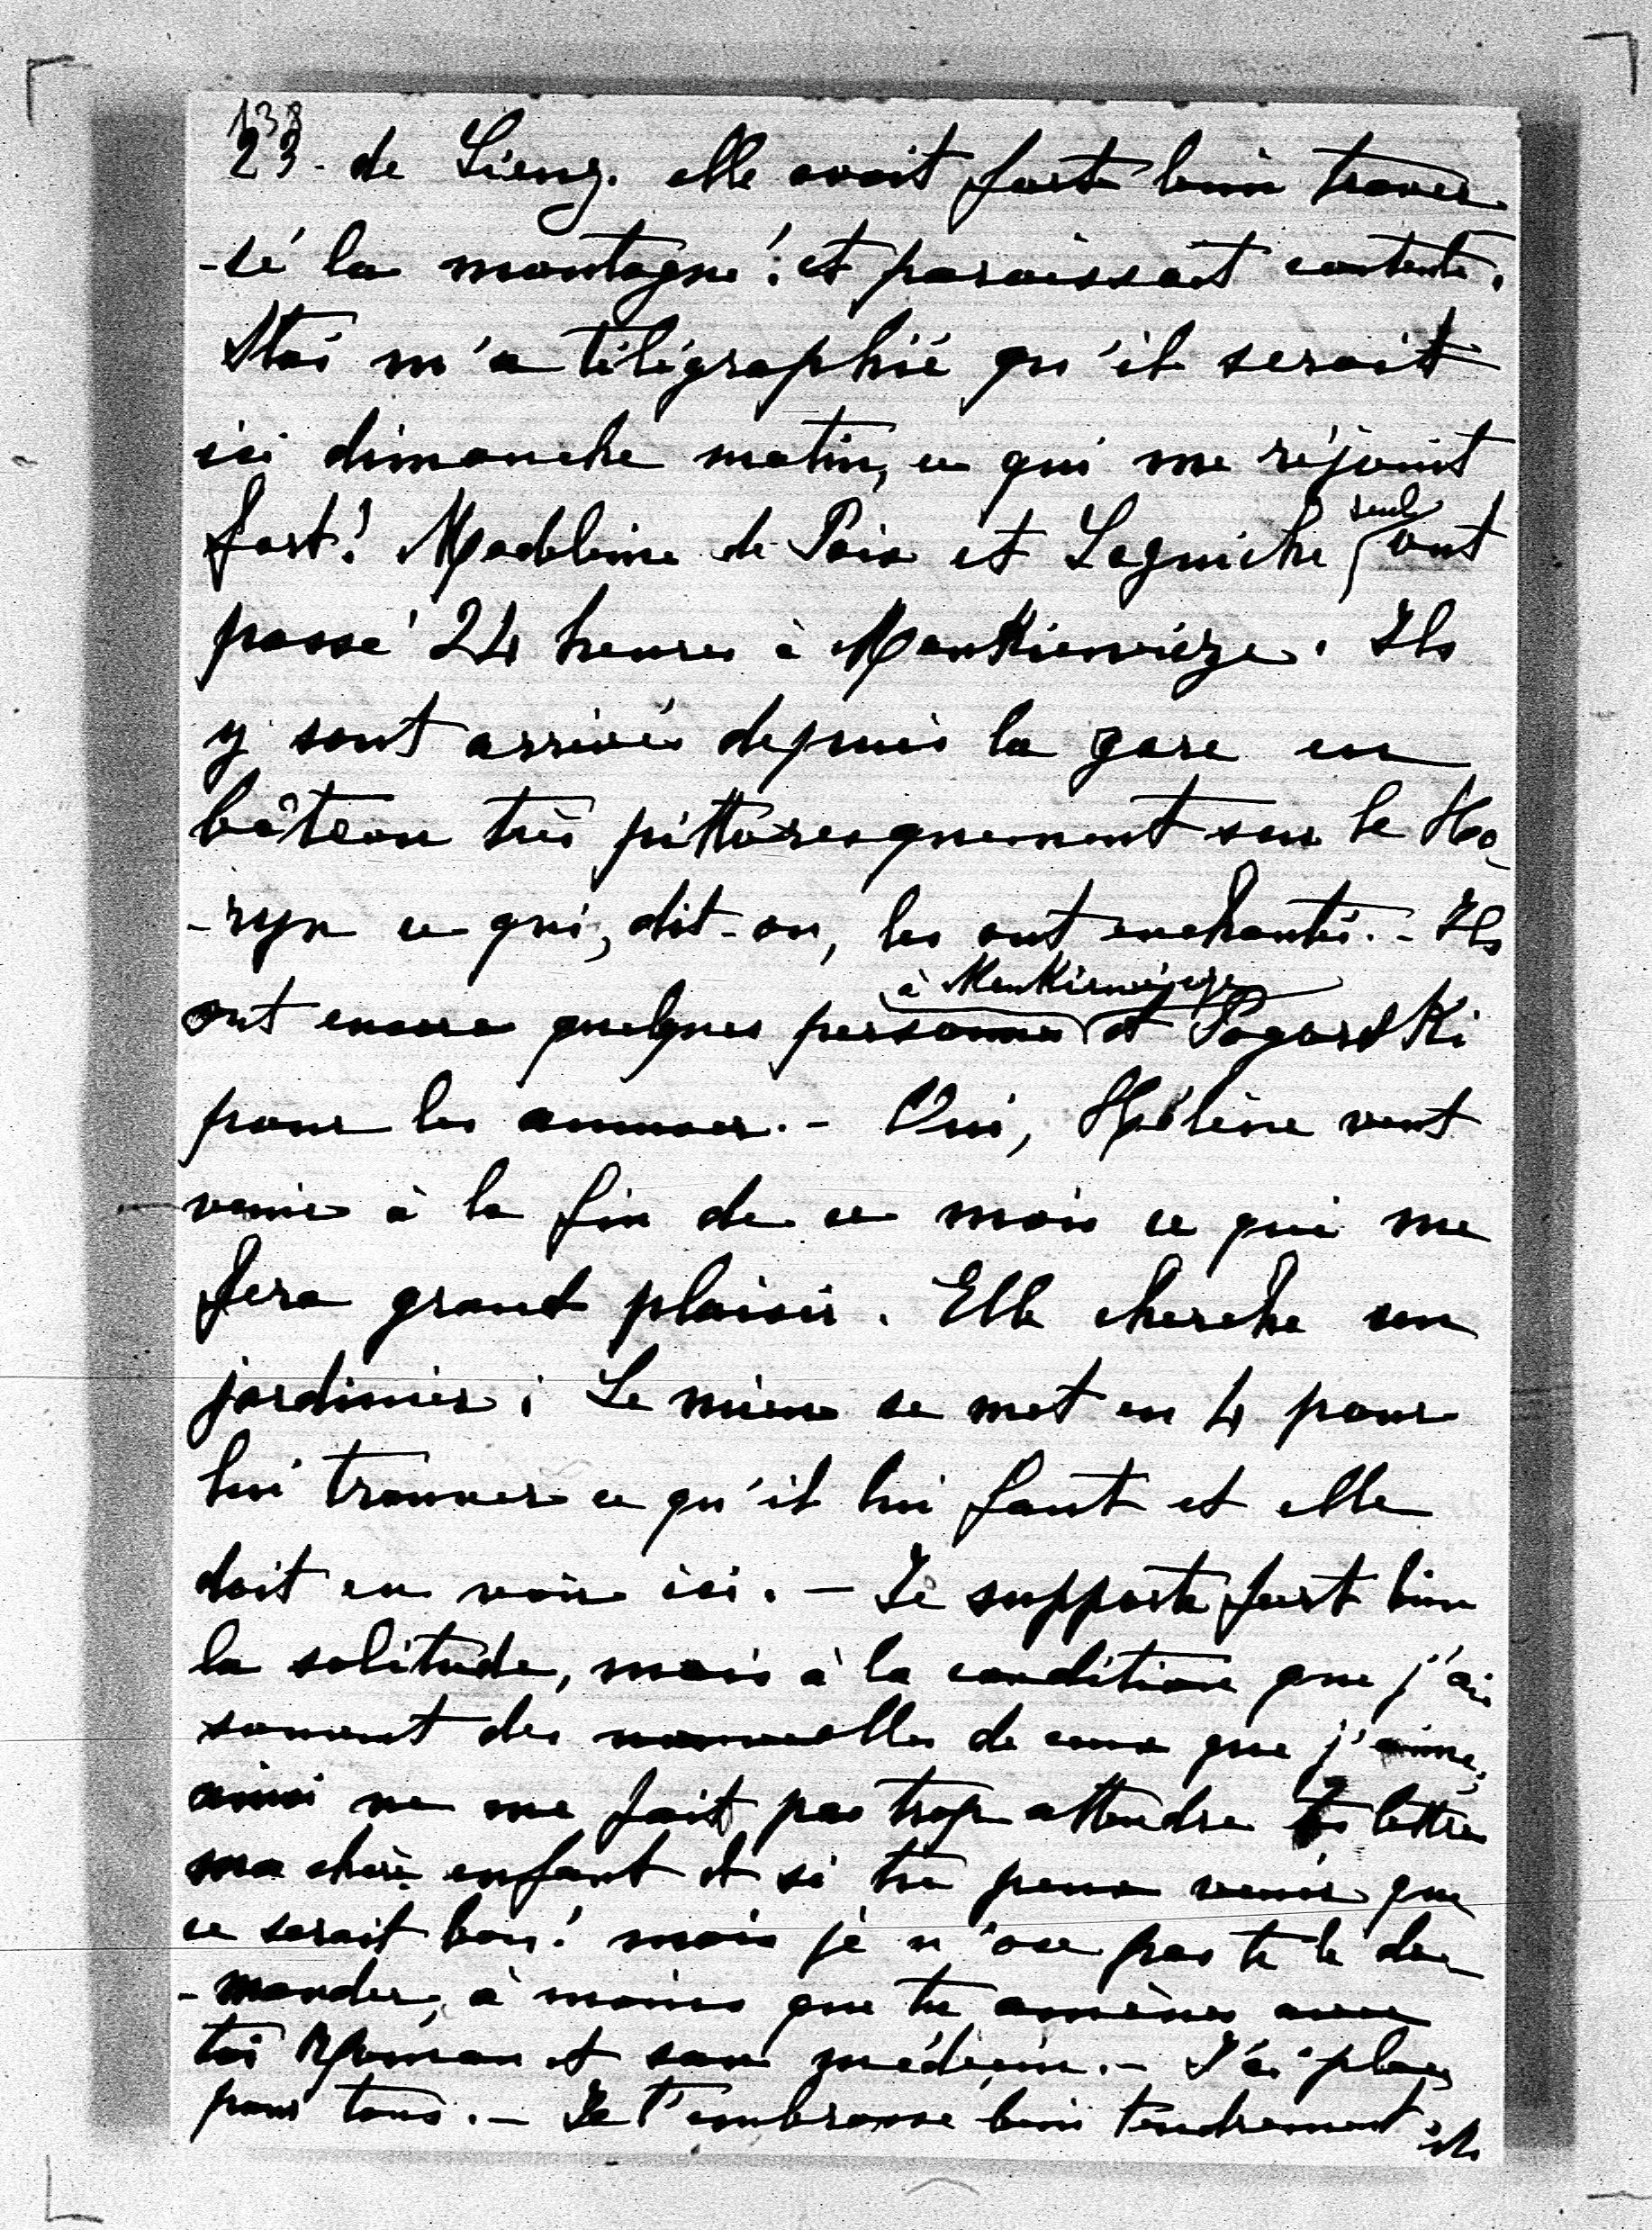 138
23 - de Lienz. elle avait fort bien traver
-sé la montagne ! et paraissait contente.
Stas m'a télégraphié qu'il serait
ici dimanche matin, ce qui me réjouit
fort ! Madeleine de Poix et Laguiche seuls ont
passé 24 heures à Mankiewicze. Ils
y sont arrivés depuis la gare en
bâteau très pittoresquement sur le Ho
-ryn ce qui, dit-on, les ont enchantés. - Ils
ont encore quelques personnes à Mankiewicze et Pogorski
pour les amuser. - Oui, Hélène veut
venir à la fin de ce mois ce qui me
fera grand plaisir. Elle cherche un
jardinier ; Le mien se met en 4 pour
lui trouver ce qu'il lui faut et elle
doit en voir ici. - Je supporte fort bien
la solitude, mais à la condition que j'aie
souvent des nouvelles de ceux que j'aime,
ainsi ne me fait pas trop attendre tes lettres
ma chère enfant et si tu peux venir que
ce serait bon ! mais je n'ose pas te le de
-mander, à moins que tu amènes avec
toi Roman et son médecin. - J'ai place
pour tous. - Je t'embrasse bien tendrement